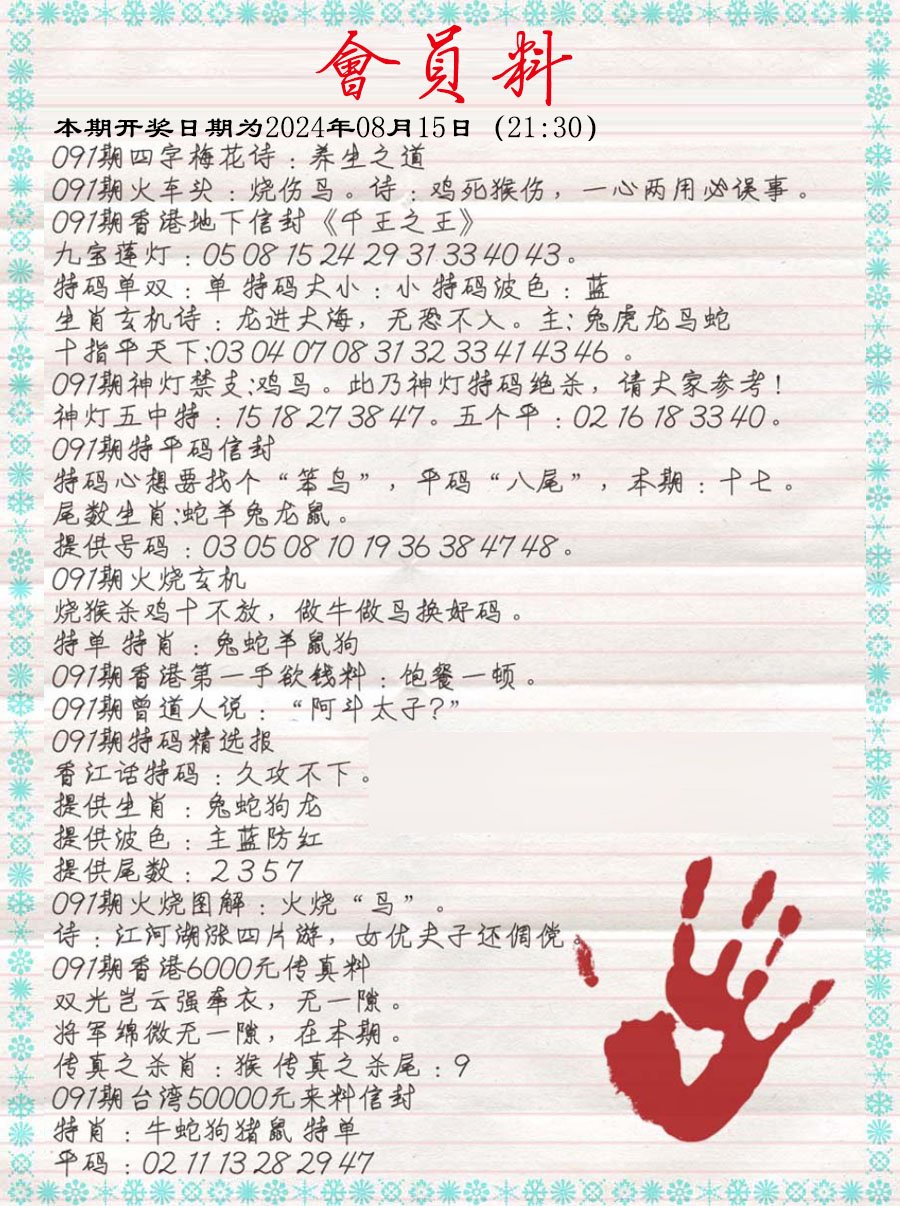 會員料
本期开奖日期为2024年08月15日（21:30）
091期四字梅花诗：养生之道
091期火车头：烧伤鸟。诗：鸡死猴伤，一心两用必误事。
091期香港地下信封《千王之王》
九宝莲灯：05 08 15 24 29 31 33 40 43。
特码单双：单 特码大小：小 特码波色：蓝
生肖玄机诗：龙进大海，无恐不入。主：兔虎龙鸟蛇
十指平天下:03 04 07 08 31 32 33 41 43 46 。
091期神灯禁支:鸡鸟。此乃神灯特码绝杀，请大家参考！
神灯五中特：15 18 27 38 47。五个平：02 16 18 33 40。
091期特平码信封
特码心想要找个“笨鸟”，平码“八尾”，本期：十七。
尾数生肖:蛇羊兔龙鼠。
提供号码：03 05 08 10 19 36 38 47 48。
091期火烧玄机
烧猴杀鸡十不放，做牛做鸟换好码。
特单 特肖：兔蛇羊鼠狗
091期香港第一手欲钱料：饱餐一顿。
091期曾道人说：“阿斗太子?”
091期特码精选报
香江话特码：久攻不下。
提供生肖：兔蛇狗龙
提供波色：主蓝防红
提供尾数：2 3 5 7
091期火烧图解：火烧“鸟”。
诗：江河湖涨四片游，女优夫子还倜傥。
091期香港6000元传真料
双光岂云强牵衣，无一隙。
将军绵微无一隙，在本期。
传真之杀肖：猴 传真之杀尾：9
091期台湾50000元来料信封
特肖：牛蛇狗猪鼠 特单
平码：02 11 13 28 29 47